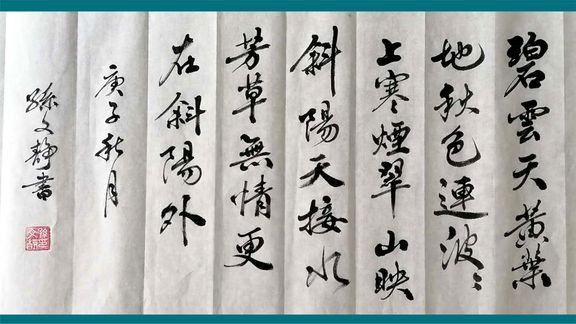 碧雲天黃葉
地秋色連波〻
上寒煙翠山映
斜陽天接水
芳草無情更
在斜陽外
庚子秋月
孫文靜書